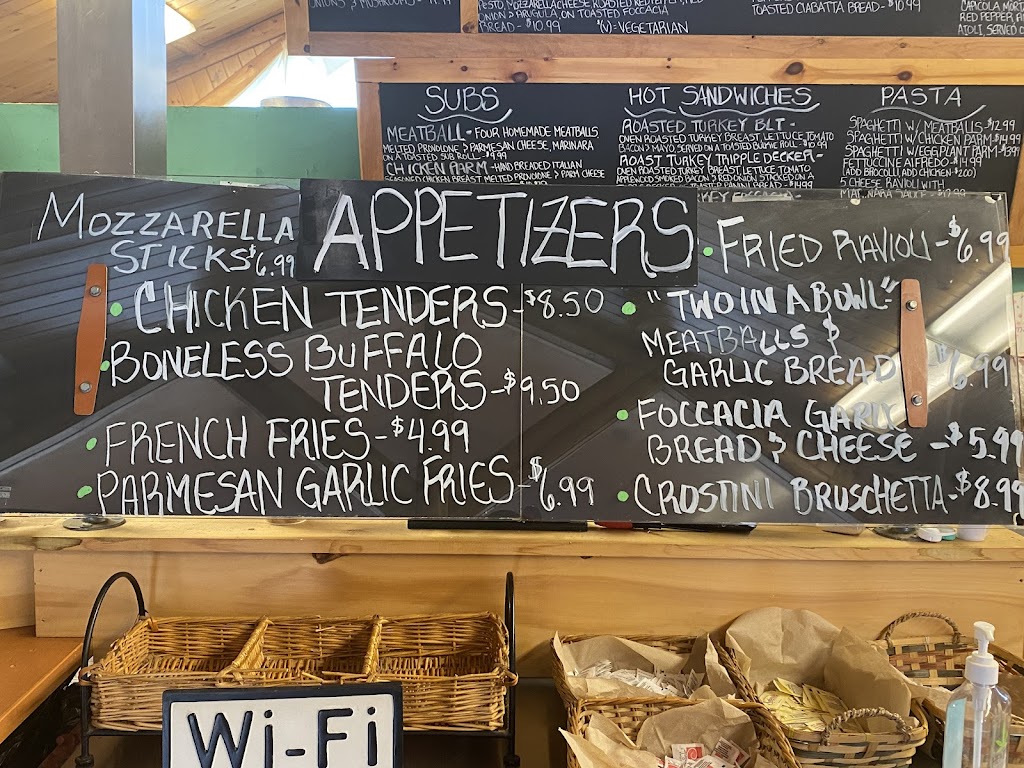 ONIONS & MUSHROOMS
PESTO, MOZZARELLA CHEESE, ROASTED RED PEPPER, RED
ONION & ARUGULA, ON TOASTED FOCCACIA
BREAD - $10.99
"(V) = VEGETARIAN
TOASTED CIABATTA BREAD - $10.99
CAPICOLA
RED PEPPER
AIOLI, SERVED
SUBS
MEATBALL - FOUR HOMEMADE MEATBALLS
MELTED PROVOLONE & PARMESAN CHEESE, MARINARA
ON A TOASTED SUB ROLL
CHICKEN PARM - HAND BREADED ITALIAN
SEASONED CHICKEN BREAST MELTED PROVOLONE & PARM CHEESE
HOT SANDWICHES
ROASTED TURKEY BLT -
OVEN ROASTED TURKEY BREAST, LETTUCE, TOMATO
BACON & MAYO, SERVED ON A TOASTED BULKIE ROLL - $10.99
ROAST TURKEY TRIPPLE DECKER -
OVEN ROASTED TURKEY BREAST LETTUCE TOMATO
APPLEWOOD SMOKED BACON & RED ONION STACKED ON A
TOASTED PANINI BREAD - $14.99
PASTA
SPAGHETTI W/ MEATBALLS - $12.99
SPAGHETTI W/ CHICKEN PARM - $14.99
SPAGHETTI W/ EGGPLANT PARM -
FETTUCCINE ALFREDO - $14.99
(ADD BROCCOLI, ADD CHICKEN $2.00)
5 CHEESE RAVIOLI WITH
MARINARA SAUCE - $12.99
APPETIZERS
MOZZARELLA
STICKS $6.99
CHICKEN TENDERS - $8.50
BONELESS BUFFALO
TENDERS - $9.50
FRENCH FRIES - $4.99
PARMESAN GARLIC FRIES - $6.99
FRIED RAVIOLI - $6.99
"TWO IN A BOWL"
MEATBALLS &
GARLIC BREAD $6.99
FOCCACIA GARLIC
BREAD & CHEESE - $5.99
CROSTINI BRUSCHETTA - $8.99
Wi-Fi